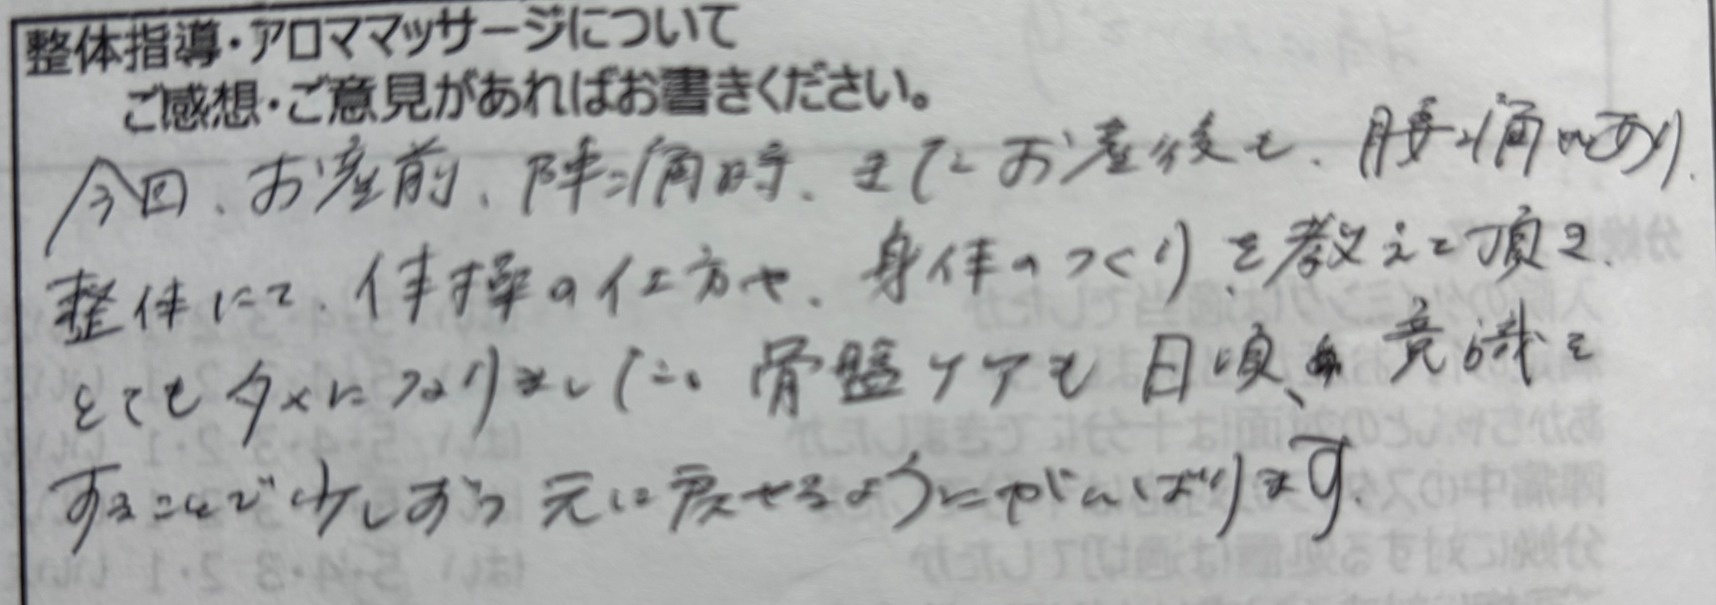 整体指導・アロママッサージについて
ご感想・ご意見があればお書きください。
今回、お産前、陣痛時、またお産後も、腰痛があり、
整体にて、体操の仕方や、身体のつくりを教えて頂き、
とてもタメになりました。骨盤ケアも日頃、意識を
することで少しずつ元に戻せるようにがんばります。